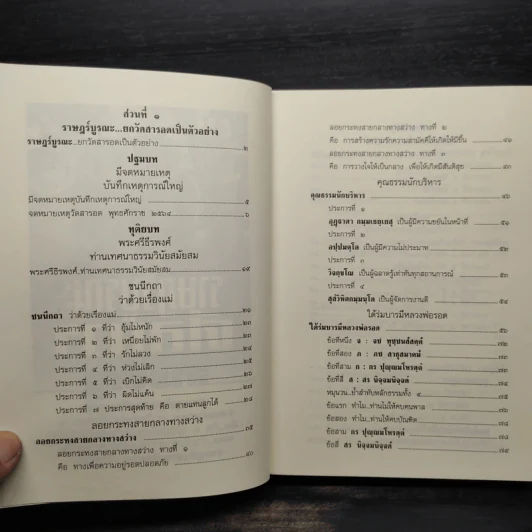 ส่วนที่ ๑
ราษฎร์บูรณะ...ยกวัดสารอดเป็นตัวอย่าง
ราษฎร์บูรณะ...ยกวัดสารอดเป็นตัวอย่าง ๒
ปฐมบท
มีจดหมายเหตุ
บันทึกเหตุการณ์ใหญ่
มีจดหมายเหตุบันทึกเหตุการณ์ใหญ่ ๕
จดหมายเหตุวัดสารอด พุทธศักราช ๒๕๖๔ ๖
ทุติยบท
พระศรีธีรพงศ์
ท่านเทศนาธรรมวินัยสมัยสม
พระศรีธีรพงศ์..ท่านเทศนาธรรมวินัยสมัยสม ๑๙
ชนนีกถา
ว่าด้วยเรื่องแม่
ชนนีกถา ว่าด้วยเรื่องแม่ ๒๑
ประการที่ ๑ ที่ว่า อุ้มไม่หนัก ๒๓
ประการที่ ๒ ที่ว่า เหนื่อยไม่พัก ๒๓
ประการที่ ๓ ที่ว่า รักไม่ลวง ๒๔
ประการที่ ๔ ที่ว่า ห่วงไม่เลิก ๒๕
ประการที่ ๕ ที่ว่า เบิกไม่คิด ๒๖
ประการที่ ๖ ที่ว่า ผิดไม่แค้น ๒๗
ประการที่ ๗ ประการสุดท้าย คือ ตายแทนลูกได้ ๒๘
ลอยกระทงสายกลางทางสว่าง
ลอยกระทงสายกลางทางสว่าง ๓๕
ลอยกระทงสายกลางทางสว่าง ทางที่ ๑
คือ ทางเพื่อความอยู่รอดปลอดภัย ๔๐
ลอยกระทงสายกลางทางสว่าง ทางที่ ๒
คือ การสร้างความรักความสามัคคีให้เกิดให้มีขึ้น ๔๑
ลอยกระทงสายกลางทางสว่าง ทางที่ ๓
คือ การวางใจให้เป็นกลาง เพื่อให้เกิดมีสันติสุข
คุณธรรมนักบริหาร
คุณธรรมนักบริหาร ๔๖
ประการที่ ๑
เป็นผู้มีความขยันในหน้าที่
ประการที่ ๒
อปฺปมตฺโต เป็นผู้มีความไม่ประมาท
ประการที่ ๓
เป็นผู้ฉลาดรู้เท่าทันทุกสถานการณ์
ประการที่ ๔
เป็นผู้จัดการงานดี
ใต้ร่มบารมีหลวงพ่อรอด
ใต้ร่มบารมีหลวงพ่อรอด ๕๖
ข้อที่หนึ่ง ๗๒
ข้อที่สอง ๗๓
ข้อที่สาม
ข้อที่สี่
หมุนวน..ย้ำสำทับหลักธรรมทั้ง ๔
ข้อแรก ทำไม..ท่านไม่ให้คบคนพาล
ข้อสอง ทำไม..ท่านให้คบบัณฑิต
ข้อสาม
ข้อสี่